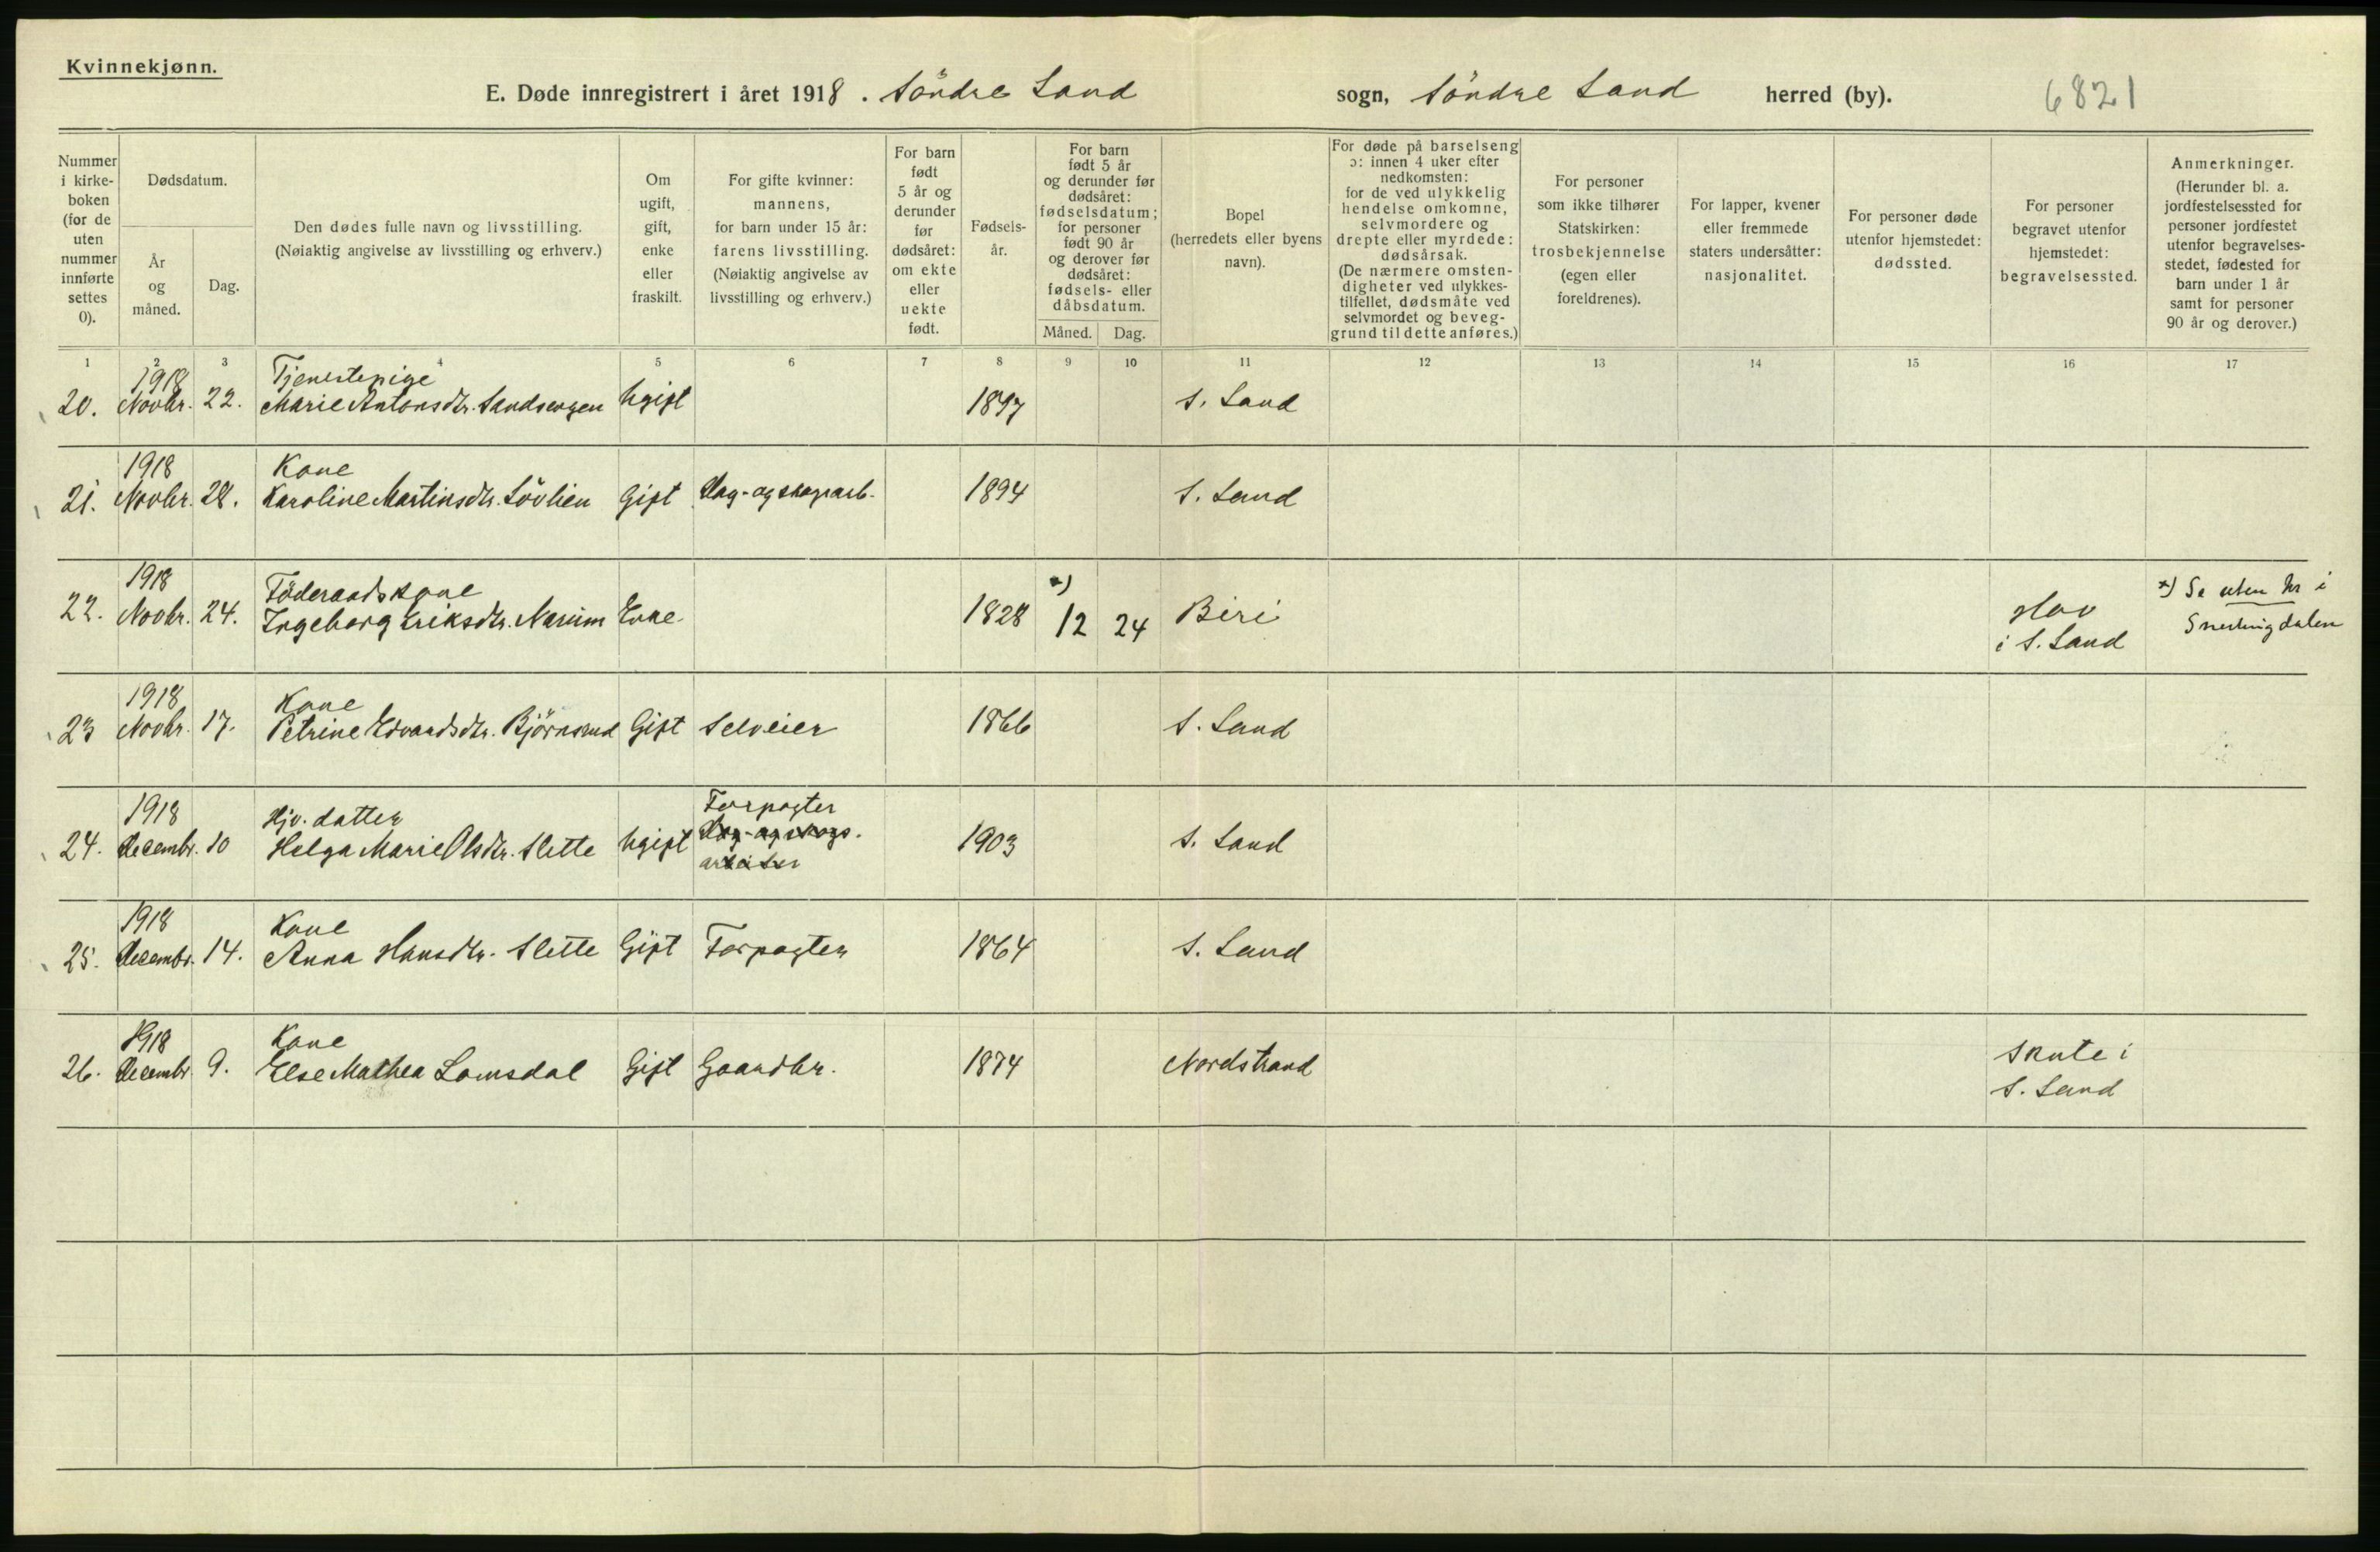 Kvinnekjønn.
E. Døde innregistrert i året 1918. Söndre Land sogn, Söndre Land herred (by). 6821
Nummer i kirke- boken (for de uten nummer innførte settes 0).
Dødsdatum.
År og måned.
Dag.
Den dødes fulle navn og livsstilling.
(Nøiaktig angivelse av livsstilling og erhverv.)
Om ugift, gift, enke eller fraskilt.
For gifte kvinner: mannens, for barn under 15 år: farens livsstilling. (Nøiaktig angivelse av livsstilling og erhverv.)
For barn født 5 år og derunder før dødsåret: om ekte eller uekte født.
Fødsels- år.
For barn født 5 år og derunder før dødsåret: fødselsdatum; for personer født 90 år og derover før dødsåret: fødsels- eller dåbsdatum.
Måned. Dag.
Bopel (herredets eller byens navn).
For døde på barselseng ɔ: innen 4 uker efter nedkomsten: for de ved ulykkelig hendelse omkomne, selvmordere og drepte eller myrdede: dødsårsak. (De nærmere omsten- digheter ved ulykkes- tilfellet, dødsmåte ved selvmordet og beveg- grund til dette anføres.)
For personer som ikke tilhører Statskirken: trosbekjennelse (egen eller foreldrenes).
For lapper, kvener eller fremmede staters undersåtter: nasjonalitet.
For personer døde utenfor hjemstedet: dødssted.
For personer begravet utenfor hjemstedet: begravelsessted.
Anmerkninger. (Herunder bl. a. jordfestelsessted for personer jordfestet utenfor begravelses- stedet, fødested for barn under 1 år samt for personer 90 år og derover.)
1 2 3 4 5 6 7 8 9 10 11 12 13 14 15 16 17
1918 Tjenestepige
20. Novbr. 22. Marie Antonsdtr. Sandsengen Ugift 1897 S. Land
1918 Kone
21. Novbr. 28. Karoline Martinsdtr. Lövlien Gift Dag- og skogsarb. 1894 S. Land
1918 Föderaadskone
22. Novbr. 24. Ingeborg Eriksdtr. Narum Enke 1828 x) 12 24 Biri Hov i S. Land x) Se uten Nr i Snertingdalen
1918 Kone
23 Novbr. 17. Petrine Edvardsdtr. Björnerud Gift Selveier 1866 S. Land
1918 Hjv. datter Forpagter
24. Decembr. 10 Helga Marie Olsdtr. Slette Ugift Dag- og skogs. arbeider 1903 S. Land
1918 Kone
25. Decembr. 14. Anna Hansdtr. Slette Gift Forpagter 1864 S. Land
1918 Kone
26. Decembr 9. Else Mathea Lomsdal Gift Gaardbr. 1874 Nordstrand Skute i S. Land